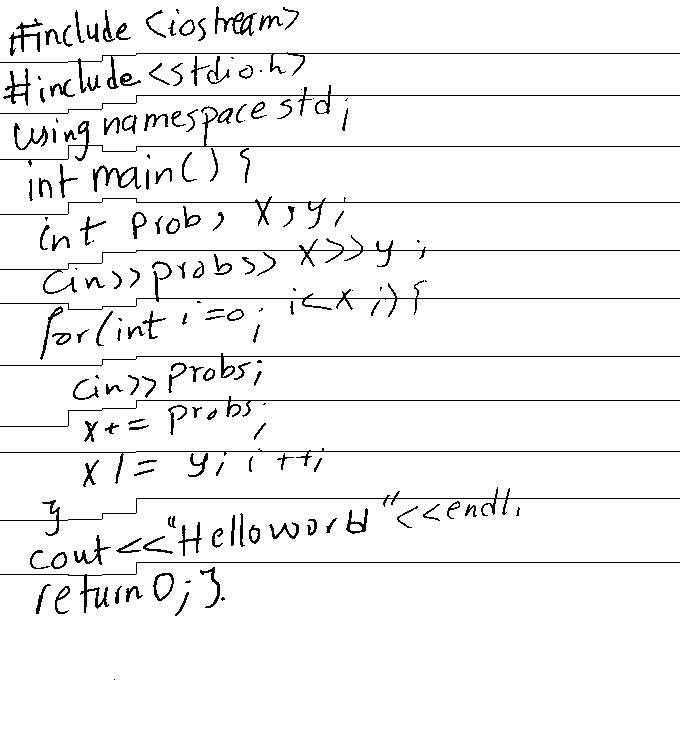 #include <iostream>
#include <stdio.h>
using namespace std;
int main() {
int prob, x, y;
cin>>probs>> x>>y;
for(int i=0; i<x;) {
cin>> probs;
x+= probs;
x /= y; i++;
}
cout<<"Hello world"<<endl;
return 0; }.